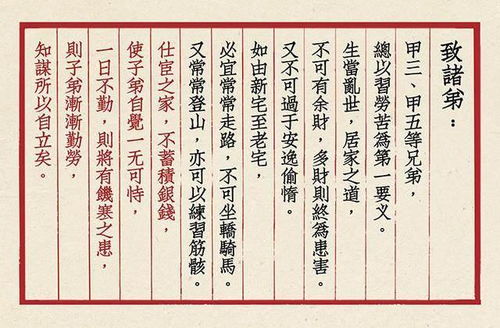 致諸弟：
甲三、甲五等兄弟，
總以習勞苦為第一要义。
生當亂世，居家之道，
不可有余財，多財則終為患害。
又不可過于安逸偷惰。
如由新宅至老宅，
必宜常常走路，不可坐轎騎馬。
又常常登山，亦可以練習筋骸。
仕宦之家，不蓄積銀錢，
使子弟自覺一无可恃，
一日不勤，則將有饑寒之患，
則子弟漸漸勤勞，
知謀所以自立矣。